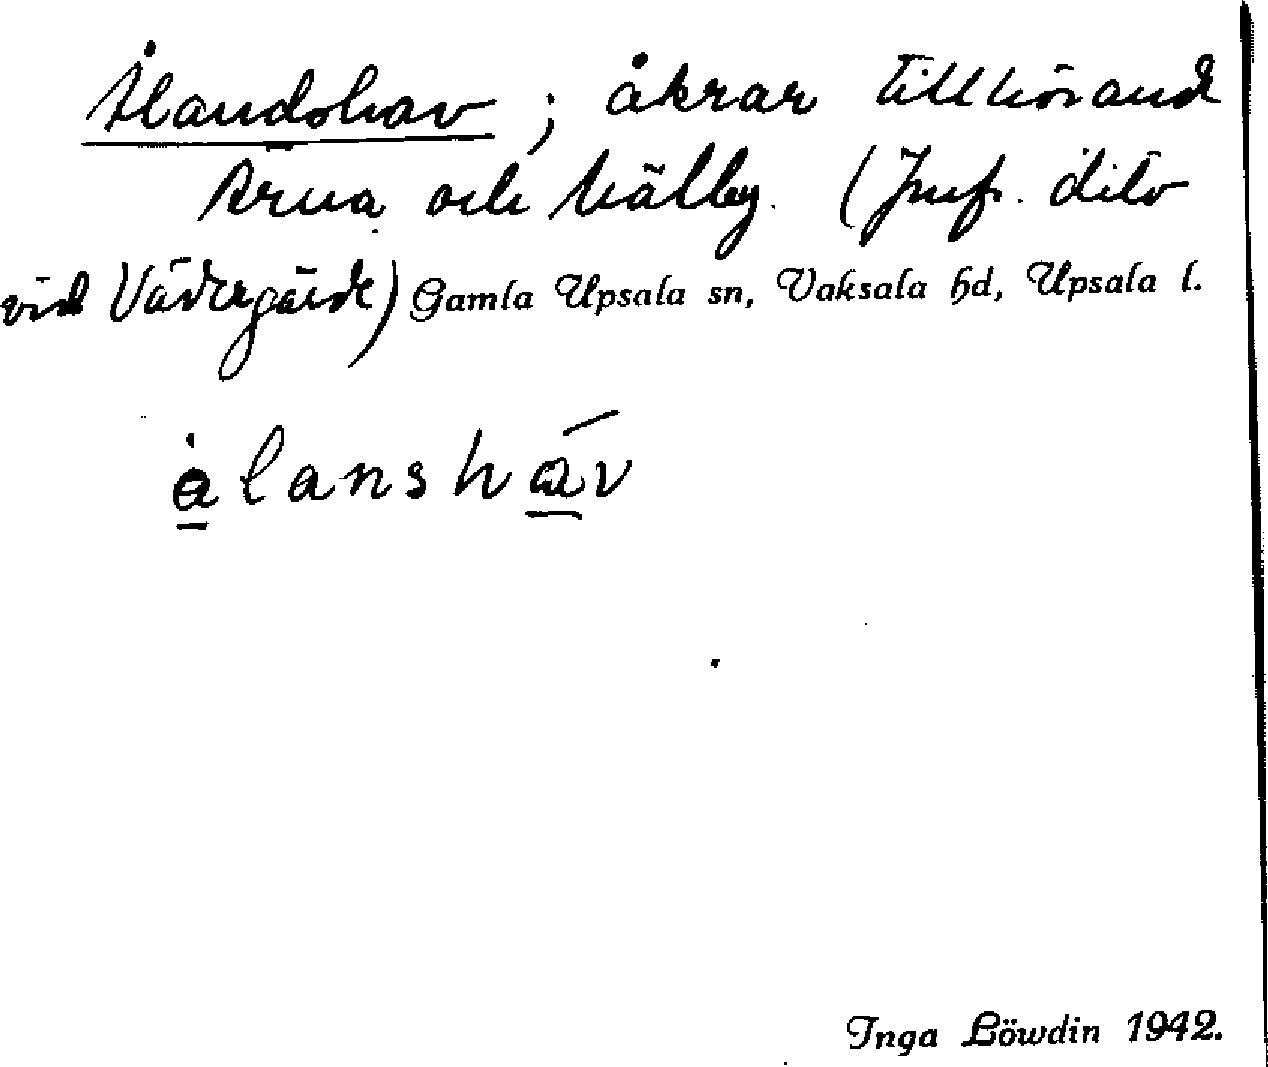 Ålandshav; åkrar tillhörande
Ärna och Hälby. (Jmf. dito
vid Vädergärde) Gamla Upsala sn, Vaksala hd, Upsala l.
ålanshav
Inga Löwdin 1942.